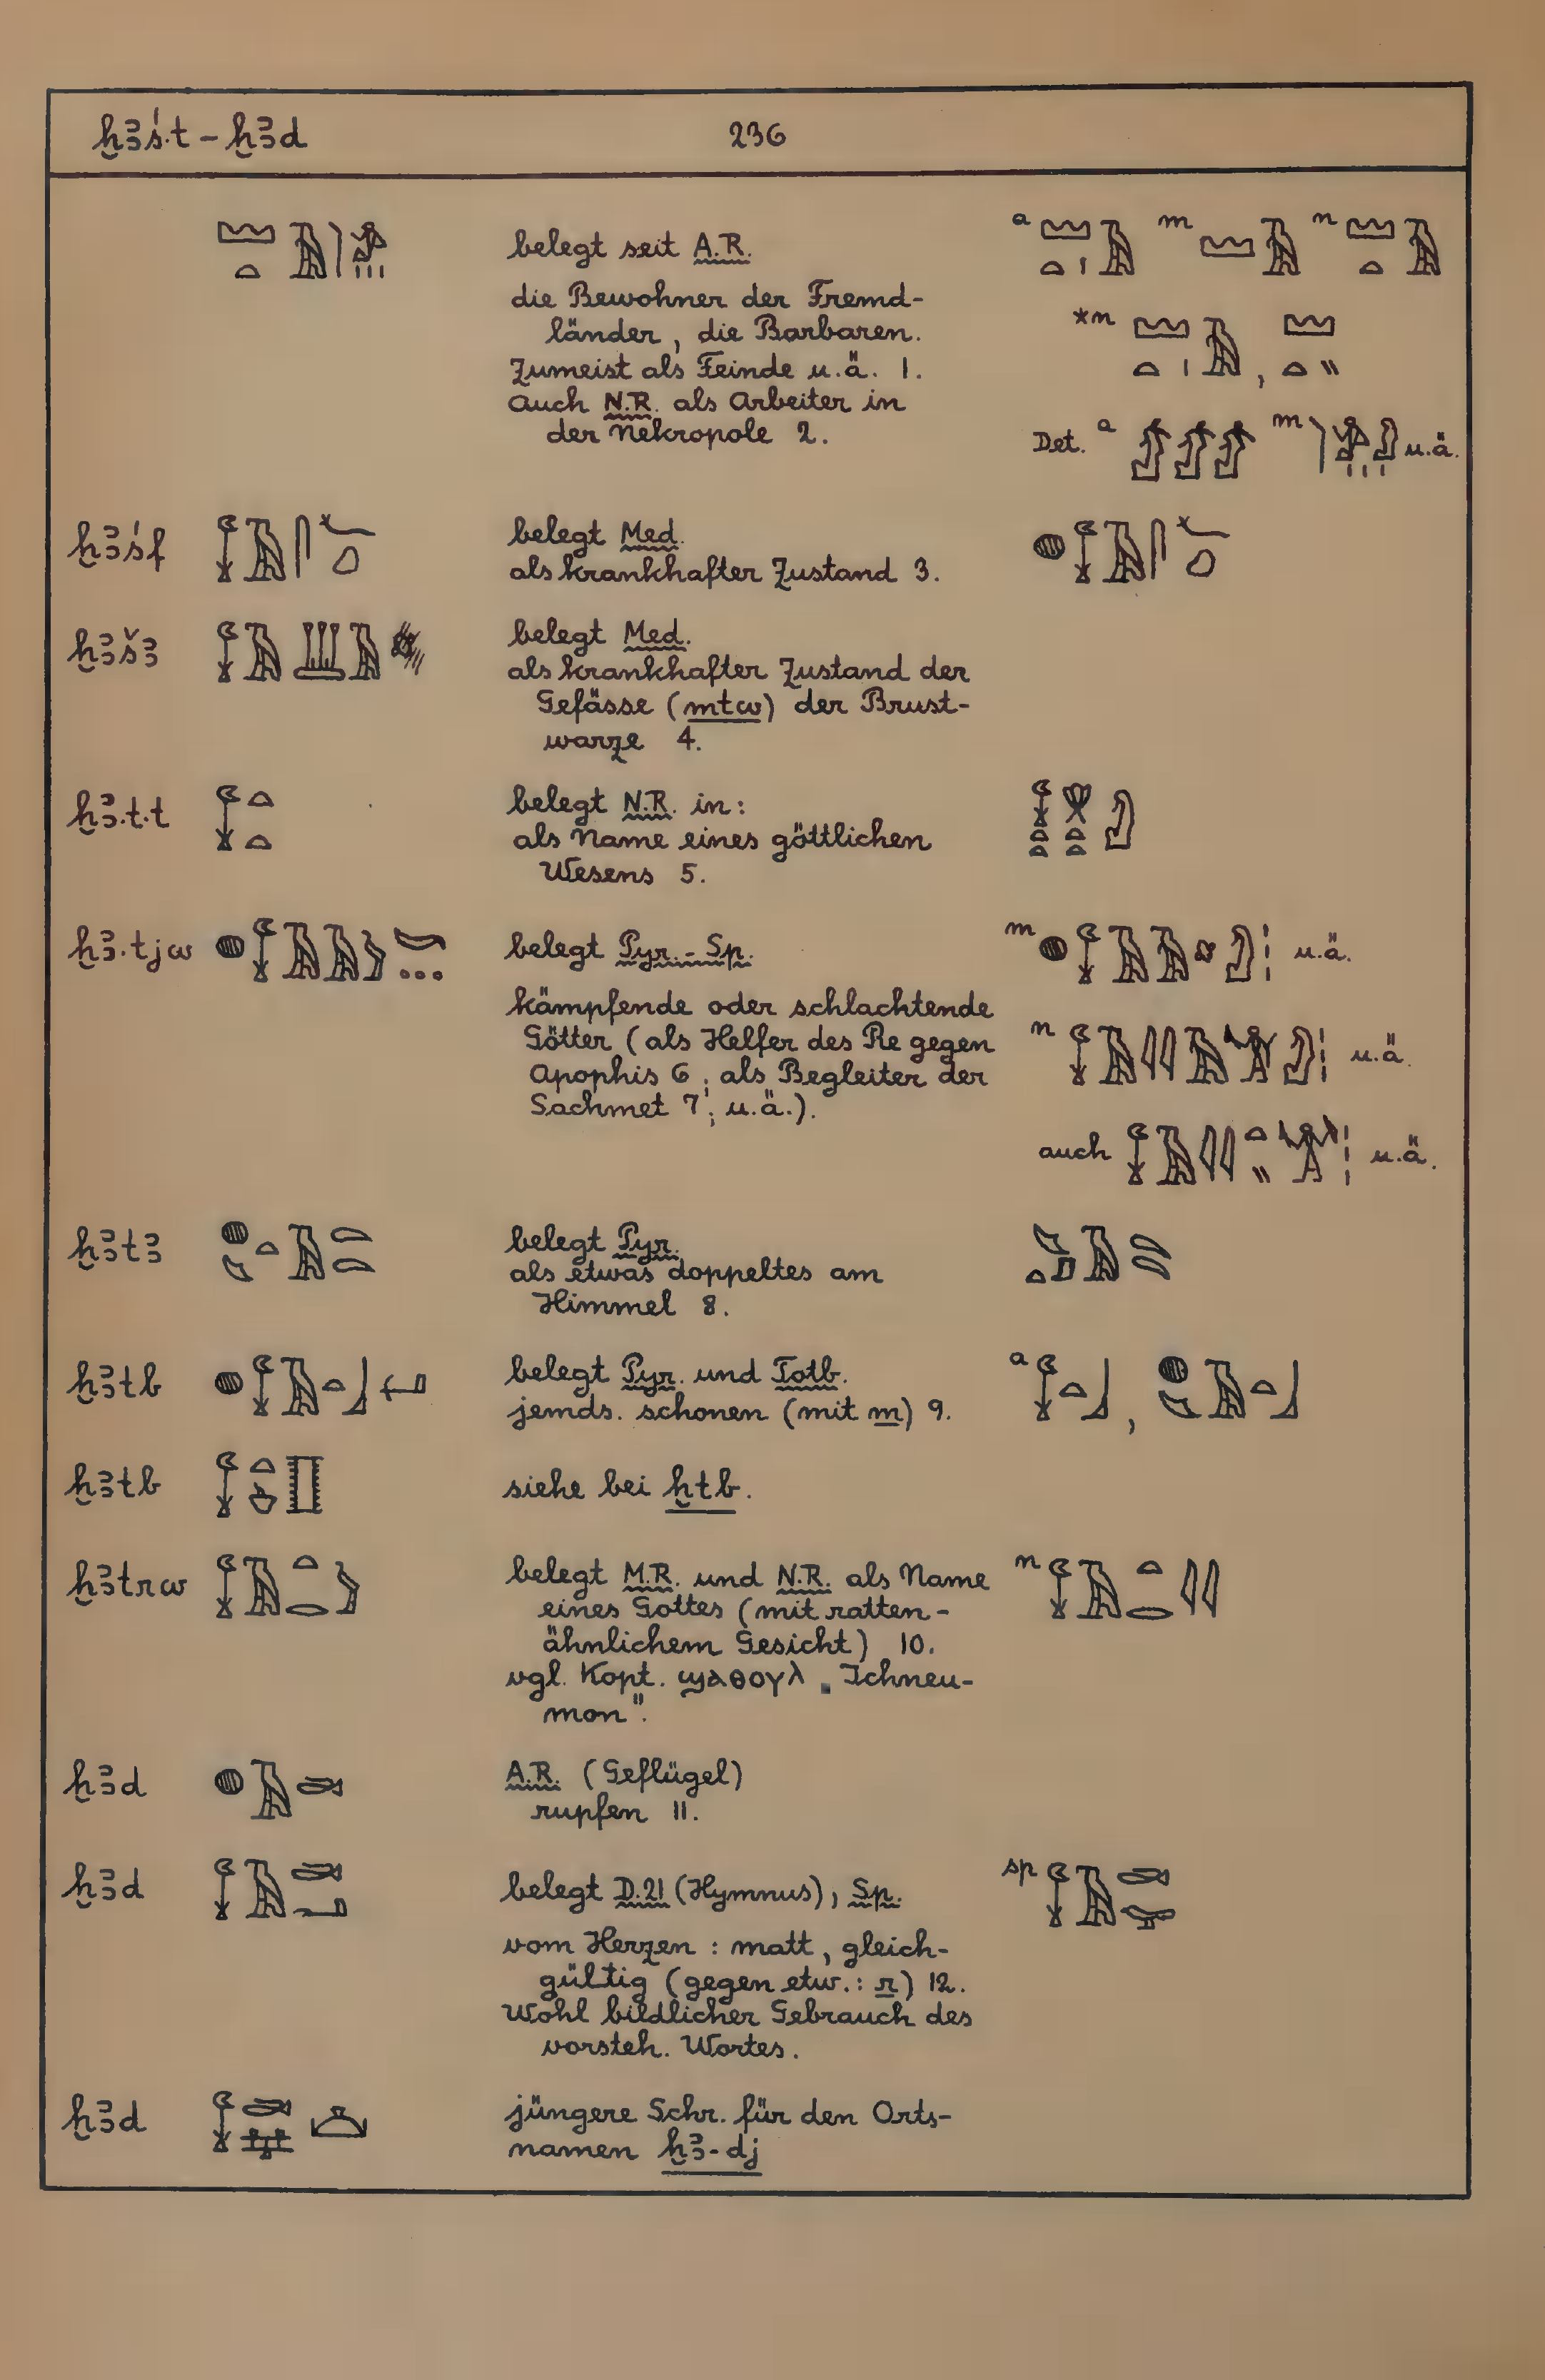 ḫꜣś.t – ḫꜣd 236
belegt seit A.R.
die Bewohner der Fremd-
länder, die Barbaren.
Zumeist als Feinde u.ä. 1.
Auch N.R. als Arbeiter in
der Nekropole 2.
a m n
*n ,
Det. a m u.ä.
ḫꜣśf belegt Med.
als krankhafter Zustand 3.
ḫꜣšꜣ belegt Med.
als krankhafter Zustand der
Gefässe (mtw) der Brust-
warze 4.
ḫꜣ.t.t belegt N.R. in:
als Name eines göttlichen
Wesens 5.
ḫꜣ.tjw belegt Pyr. - Sp. m u.ä.
kämpfende oder schlachtende
Götter (als Helfer des Re gegen n u.ä.
Apophis 6; als Begleiter der
Sachmet 7; u.ä.).
auch u.ä.
ḫꜣtꜣ belegt Pyr.
als etwas doppeltes am
Himmel 8.
ḫꜣtb belegt Pyr. und Totb. a ,
jemds. schonen (mit m) 9.
ḫꜣtb siehe bei ḫtb.
ḫꜣtrw belegt M.R. und N.R. als Name n
eines Gottes (mit ratten-
ähnlichem Gesicht) 10.
vgl. Kopt. ϣⲁⲑⲟⲩⲗ „Ichneu-
mon".
ḫꜣd A.R. (Geflügel)
rupfen 11.
ḫꜣd belegt D.21 (Hymnus), Sp. sp
vom Herzen : matt, gleich-
gültig (gegen etw.: r) 12.
Wohl bildlicher Gebrauch des
vorsteh. Wortes.
ḫꜣd jüngere Schr. für den Orts-
namen ḫꜣ-dj